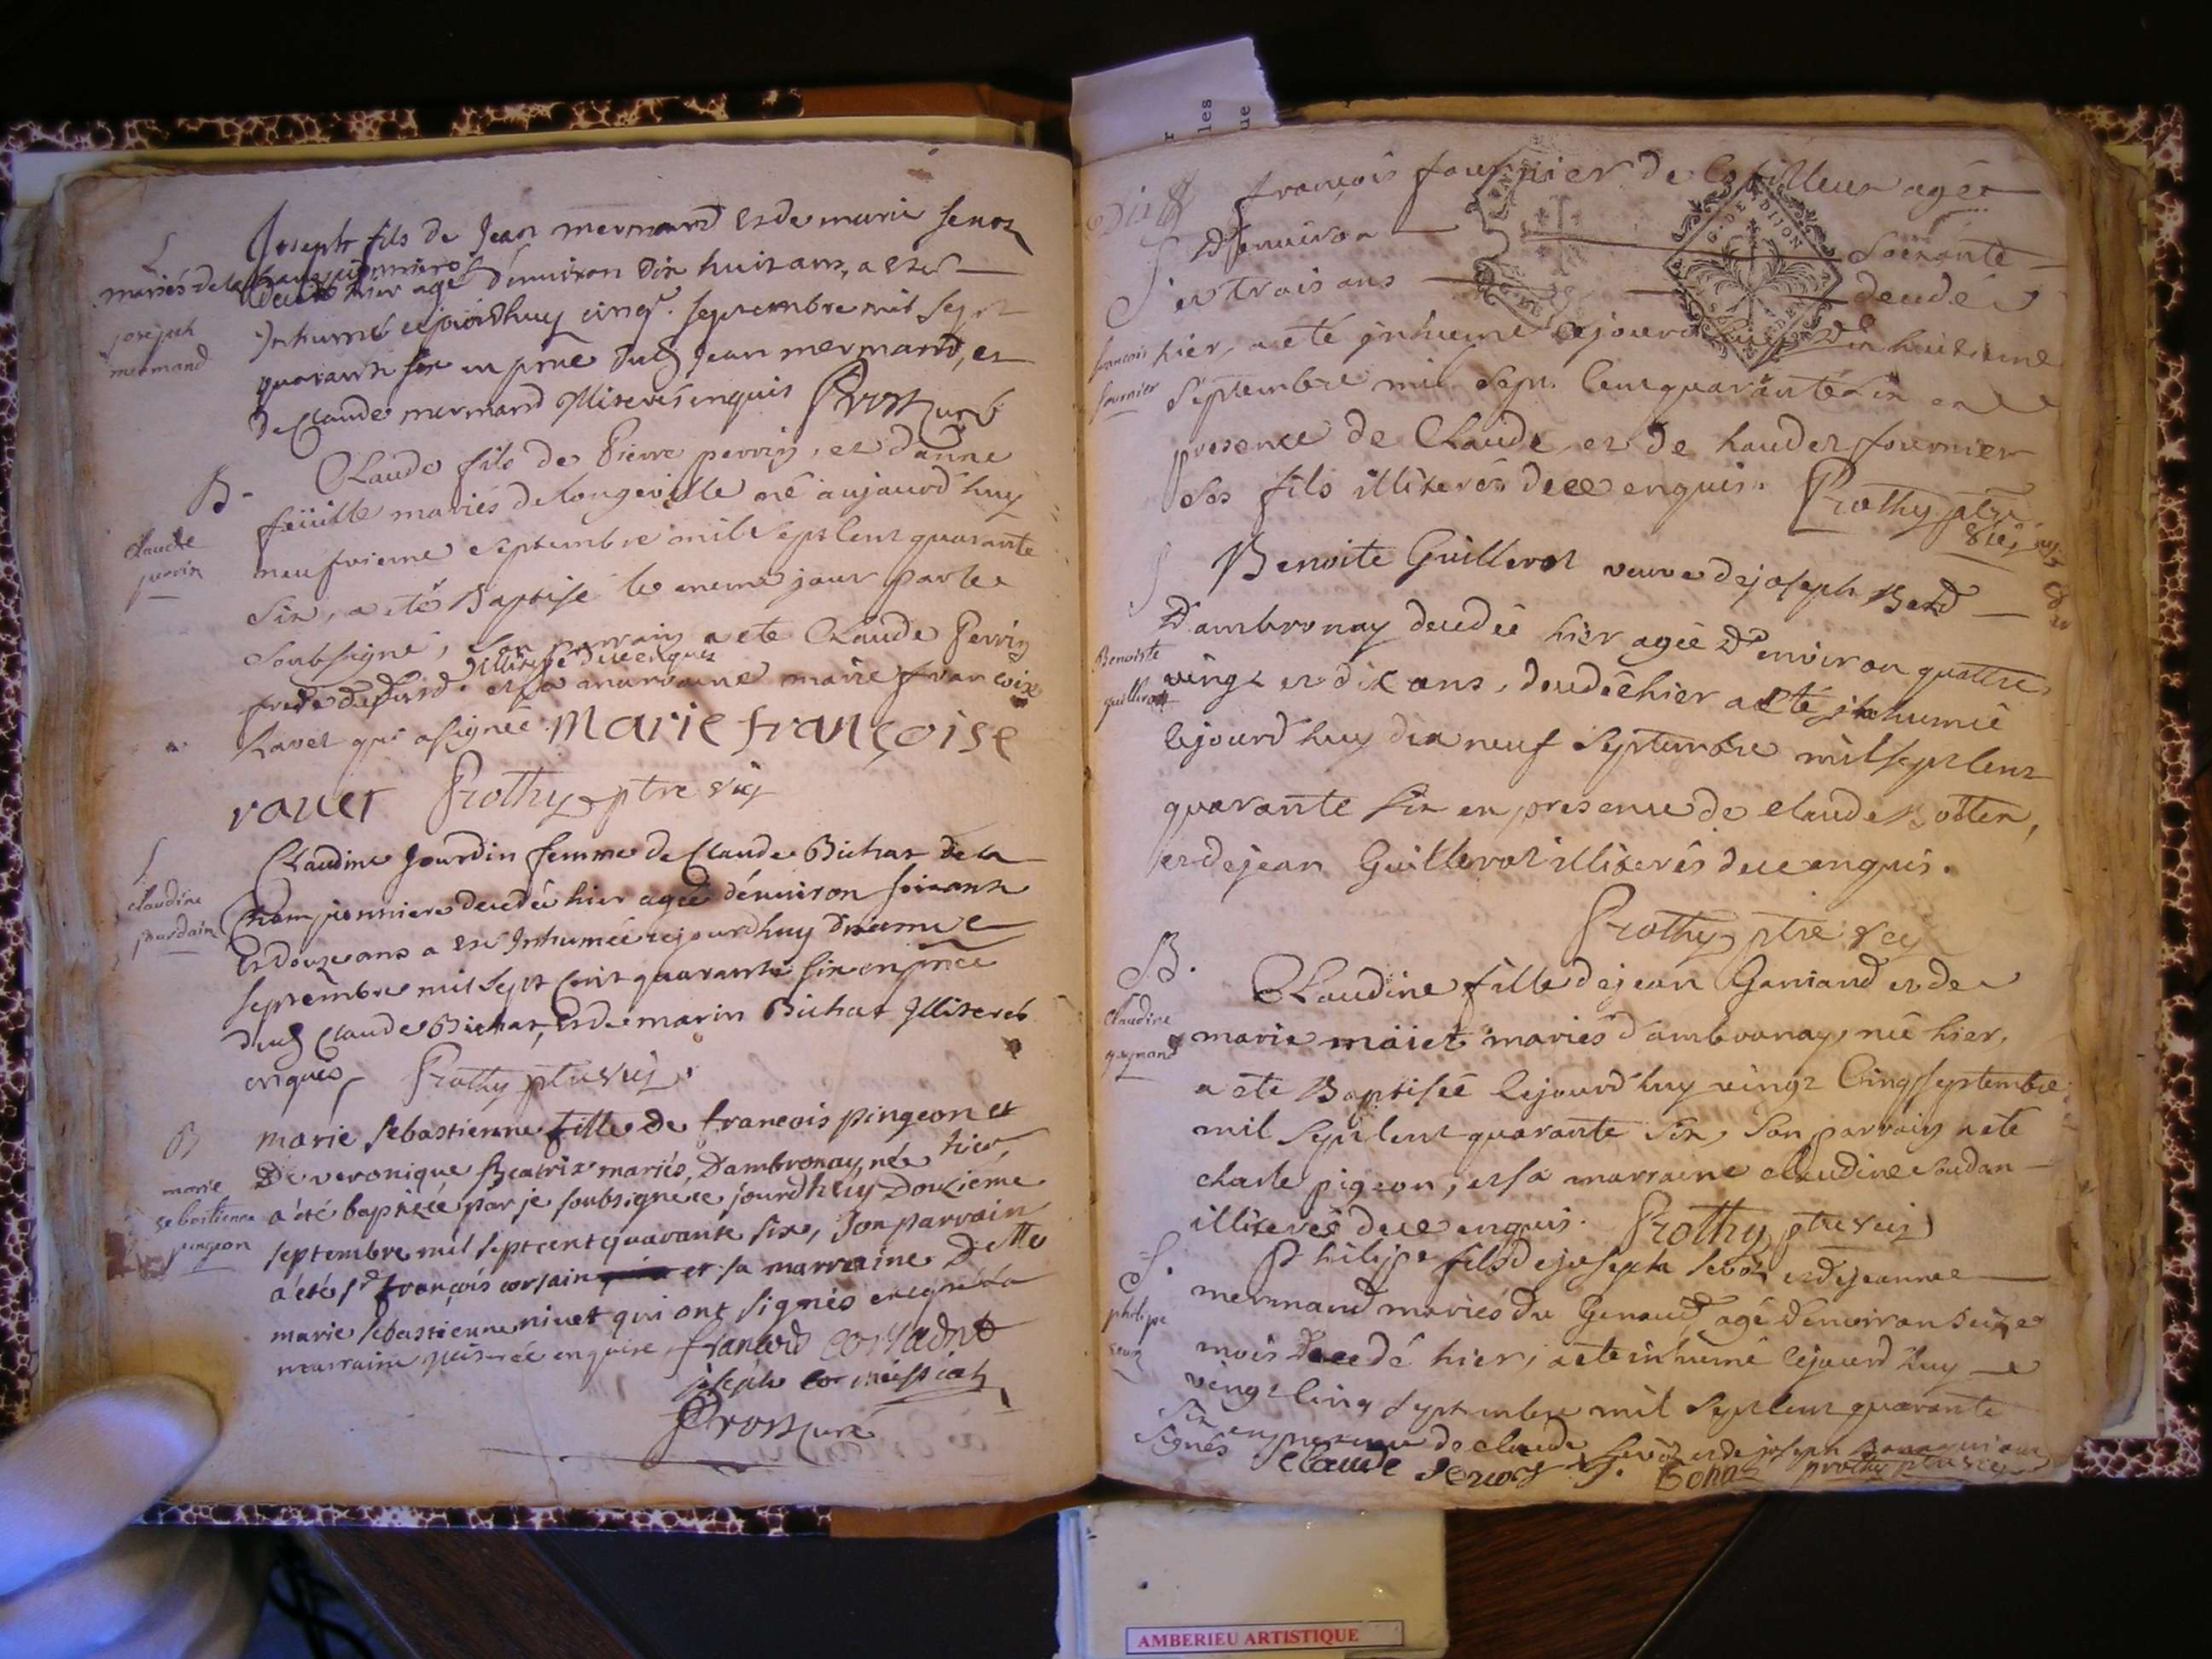 Joseph fils de Jean mermand et de marie senoz
mariés de la championniere
decedé hier agé d'environ dix huit ans, a esté
joseph
mermand
Inhumé cejourdhuy cinq.e septembre mil sept
quarante six en pnce dud Jean mermand, et
de Claude mermand illiterés enquis Prost curé
B.
claude
perrin
Claude fils de Pierre perrin, et d'anne
feüille mariés de longeville né aujourd'huy
neufvieme septembre mil sept cent quarante
six, a eté Baptisé le meme jour par le
soubsigné, son parrain a eté Claude Perrin
illiteré de ce enquis
frere et sa marraine marie francoise
ravet qui a signée marie françoise
ravet Prothy ptre vic
claudine
jourdain
Claudine Jourdin femme de Claude Bichat de la
Championniere decedée hier agée d'environ soixante
et douze ans a esté Inhumée cejourdhuy dixieme
septembre mil sept cent quarante six en pnce
dud Claude Bichat, et de marin Bichat Illiterés
enquis Prothy ptre vic
B
marie
sebastienne
pingeon
marie sebastienne fille de francois pingeon et
de veronique Beatrix mariés, d'ambronay, née hier,
a été baptizée par je soubsigné ce jourdhuy Douzieme
septembre mil sept cent quarante six, son parrain
a été sr françois corsain et sa marraine Dlle
marie sebastienne nivet qui ont signés excepté la
marraine illiterée enquise
joseph cormessiat
Prost curé
françois fournier de agé
D'environ soixante
et trois ans decedé
francois
fournier
hier, a eté inhumé cejourd'huy dix huitieme
septembre mil sept cent quarante six en
presence de Claude, et de fournier
ses fils illiterés de ce enquis. Prothy ptre
vic
Benoiste
guillerot
Benoite Guillerot veuve de joseph
D'ambronay decedée hier agée D'environ quattre
vingt et dix ans, decedée hier a eté inhumée
cejourd'huy dix neuf septembre mil sept cent
quarante six en presence de claude Botten,
et de jean Guillerot illiterés de ce enquis.
Prothy ptre vic
B.
claudine
gagnand
Claudine fille de jean Ganiand et de
marie maiet mariés d'ambronay, née hier,
a eté Baptisée cejourd'huy vingt cinq septembre
mil sept cent quarante six, son parrain a eté
charle pigeon, et sa marraine claudine soudan
illiterés de ce enquis. Prothy ptre vic
S.
philipe
Philipe fils de joseph sevoz et de jeanne
mermand mariés du Genoud, agé d'environ seize
mois decedé hier, a eté inhumé cejourd'huy
vingt cinq septembre mil sept cent quarante
six en presence de claude sevoz et de joseph
signés claude sevoz J. Bona prothy ptre vic
AMBERIEU ARTISTIQUE